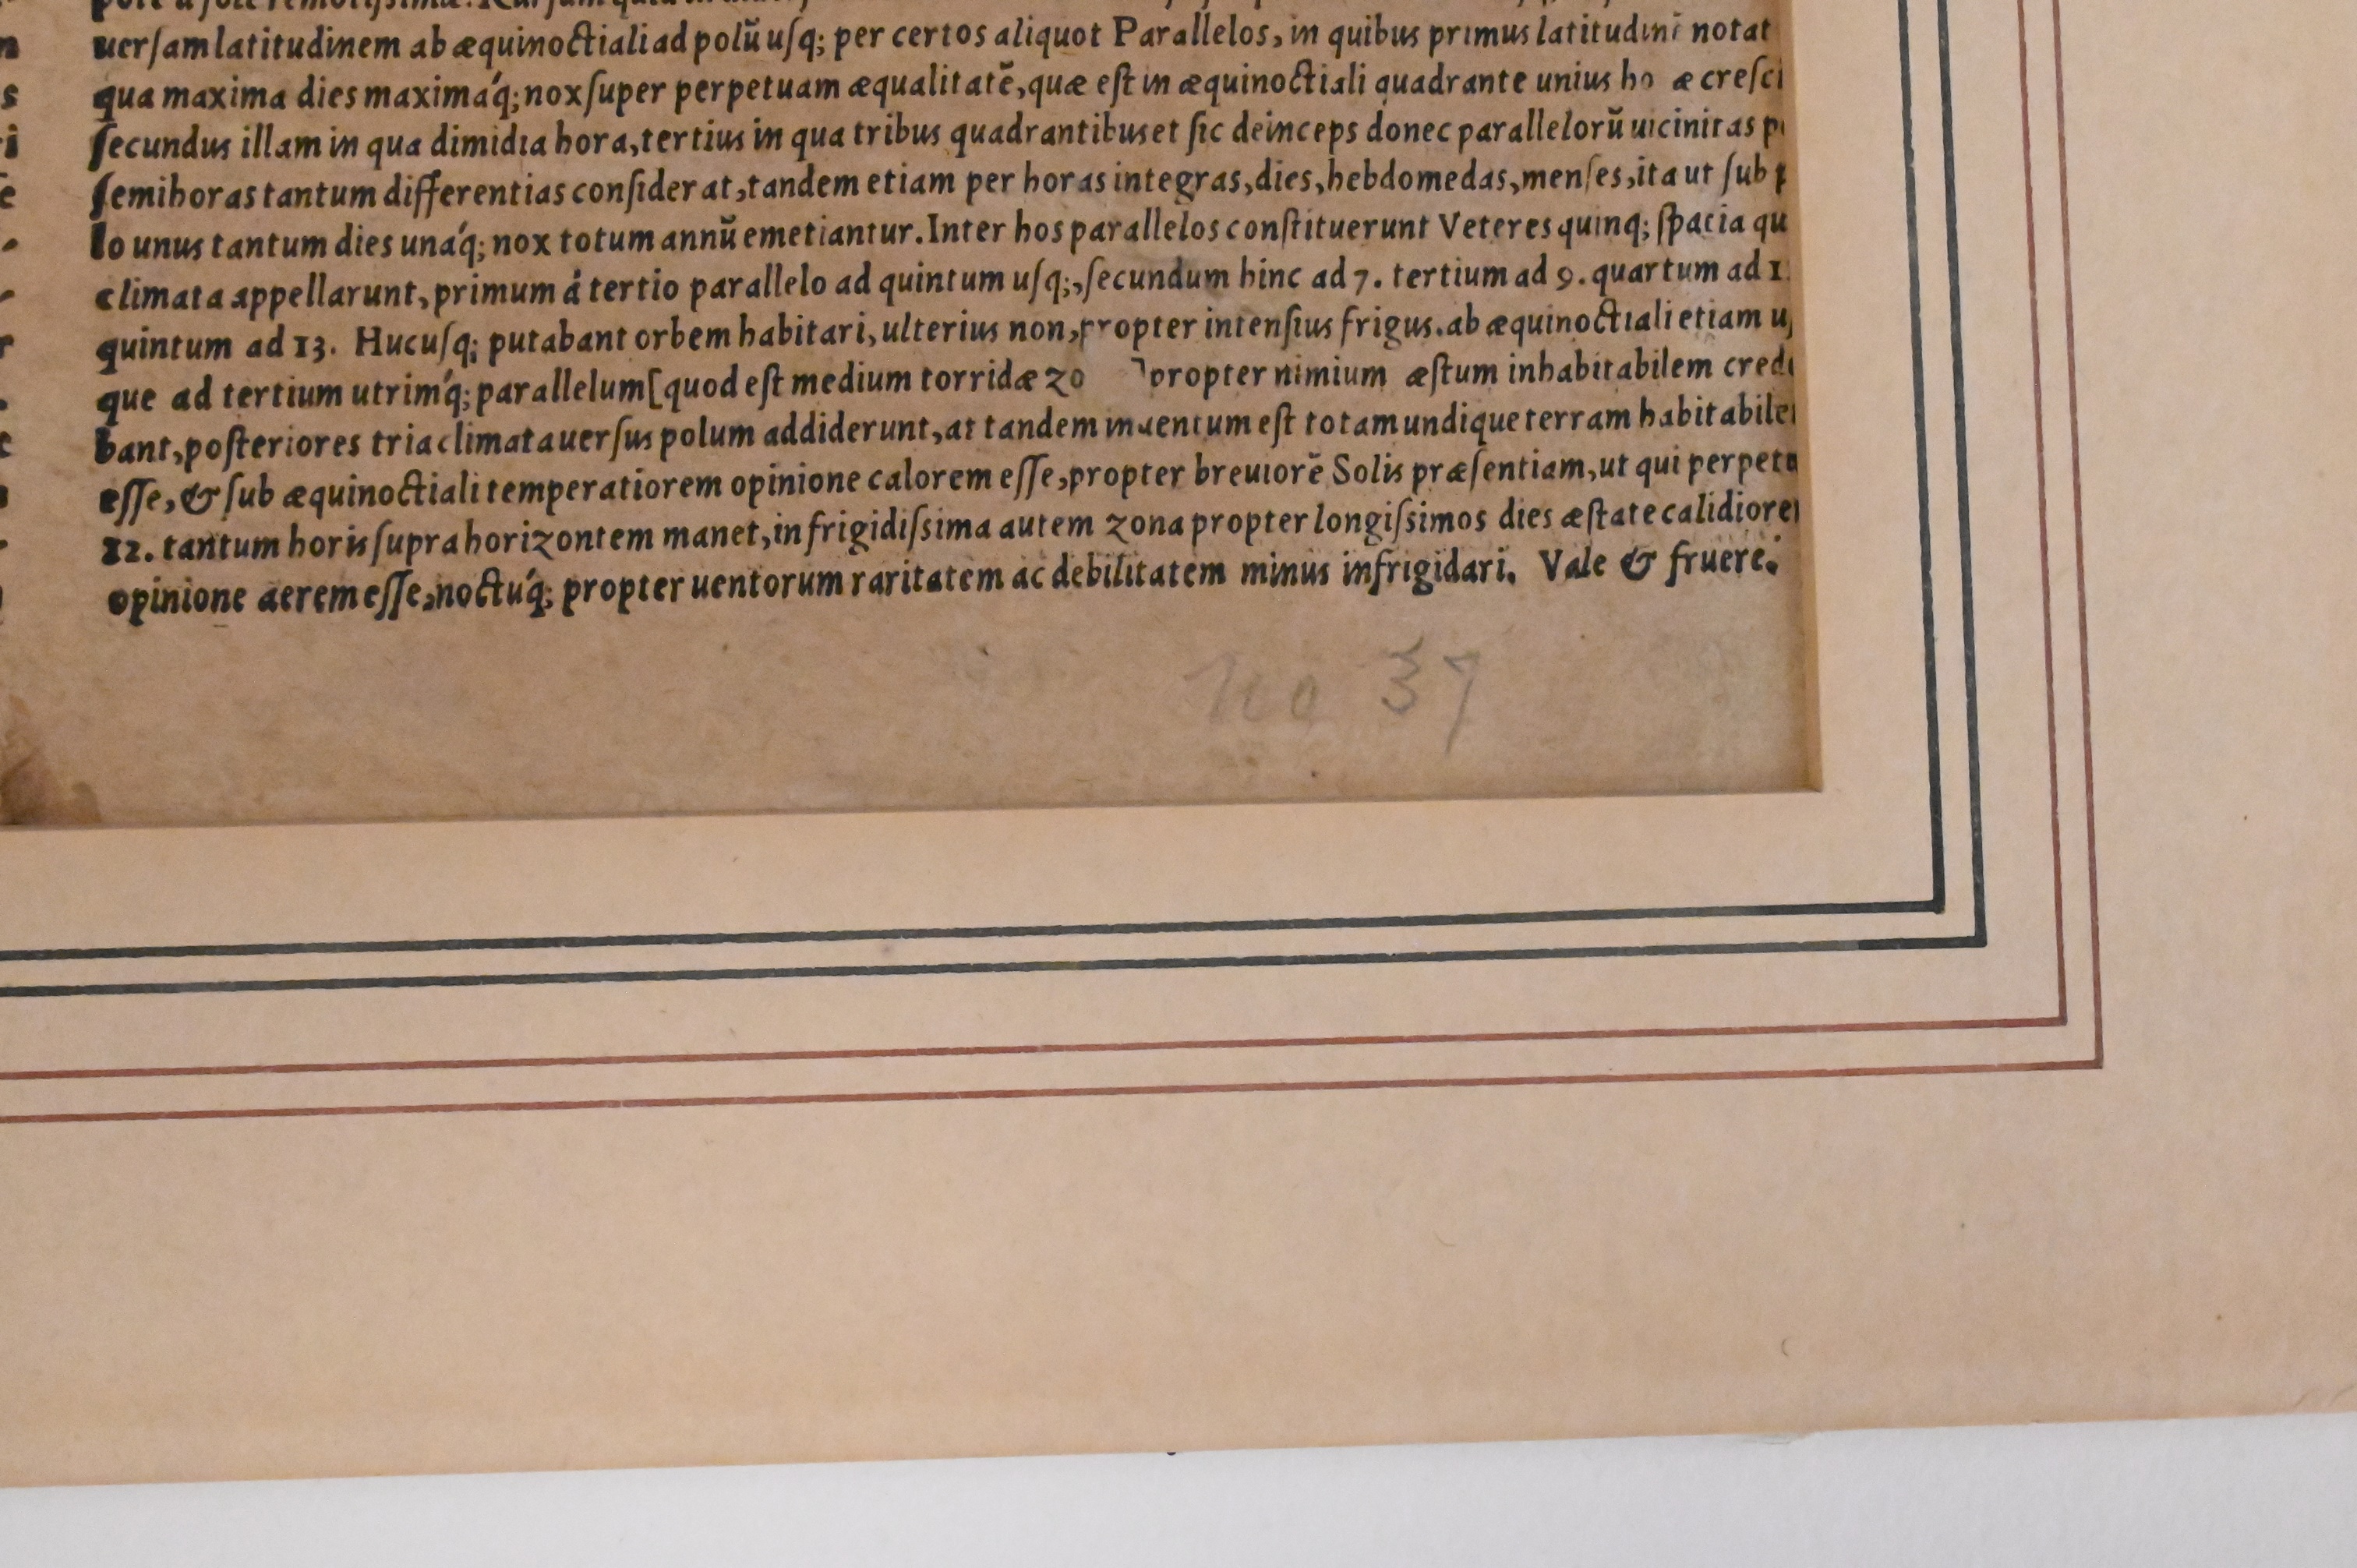 uerſam latitudinem ab æquinoctiali ad polū uſq; per certos aliquot Parallelos, in quibus primus notat
qua maxima dies maximáq; nox ſuper perpetuam æqualitatē, quæ eſt in æquinoctiali quadrante unius
ſecundus illam in qua dimidia hora, tertius in qua tribus quadrantibus et ſic deinceps donec parallelorū uicinitas
ſemihoras tantum differentias conſiderat, tandem etiam per horas integras, dies, hebdomedas, menſes, ita ut ſub
lo unus tantum dies unáq; nox totum annū emetiantur. Inter hos parallelos conſtituerunt Veteres quinq; ſpacia
climata appellarunt, primum á tertio parallelo ad quintum uſq;, ſecundum hinc ad 7. tertium ad 9. quartum ad
quintum ad 13. Hucuſq; putabant orbem habitari, ulterius non, propter intenſius frigus. ab æquinoctiali etiam
que ad tertium utrimq́; parallelum [quod eſt medium torridæ zo ] propter nimium æſtum inhabitabilem
bant, poſteriores tria climata uerſus polum addiderunt, at tandem inuentum eſt totam undique terram
eſſe, & ſub æquinoctiali temperatiorem opinione calorem eſſe, propter breuiorē Solis præſentiam, ut qui
12. tantum horis ſupra horizontem manet, in frigidiſsima autem zona propter longiſsimos dies æſtate
opinione aerem eſſe, noctúq; propter uentorum raritatem ac debilitatem minus infrigidari. Vale & fruere.
No 37